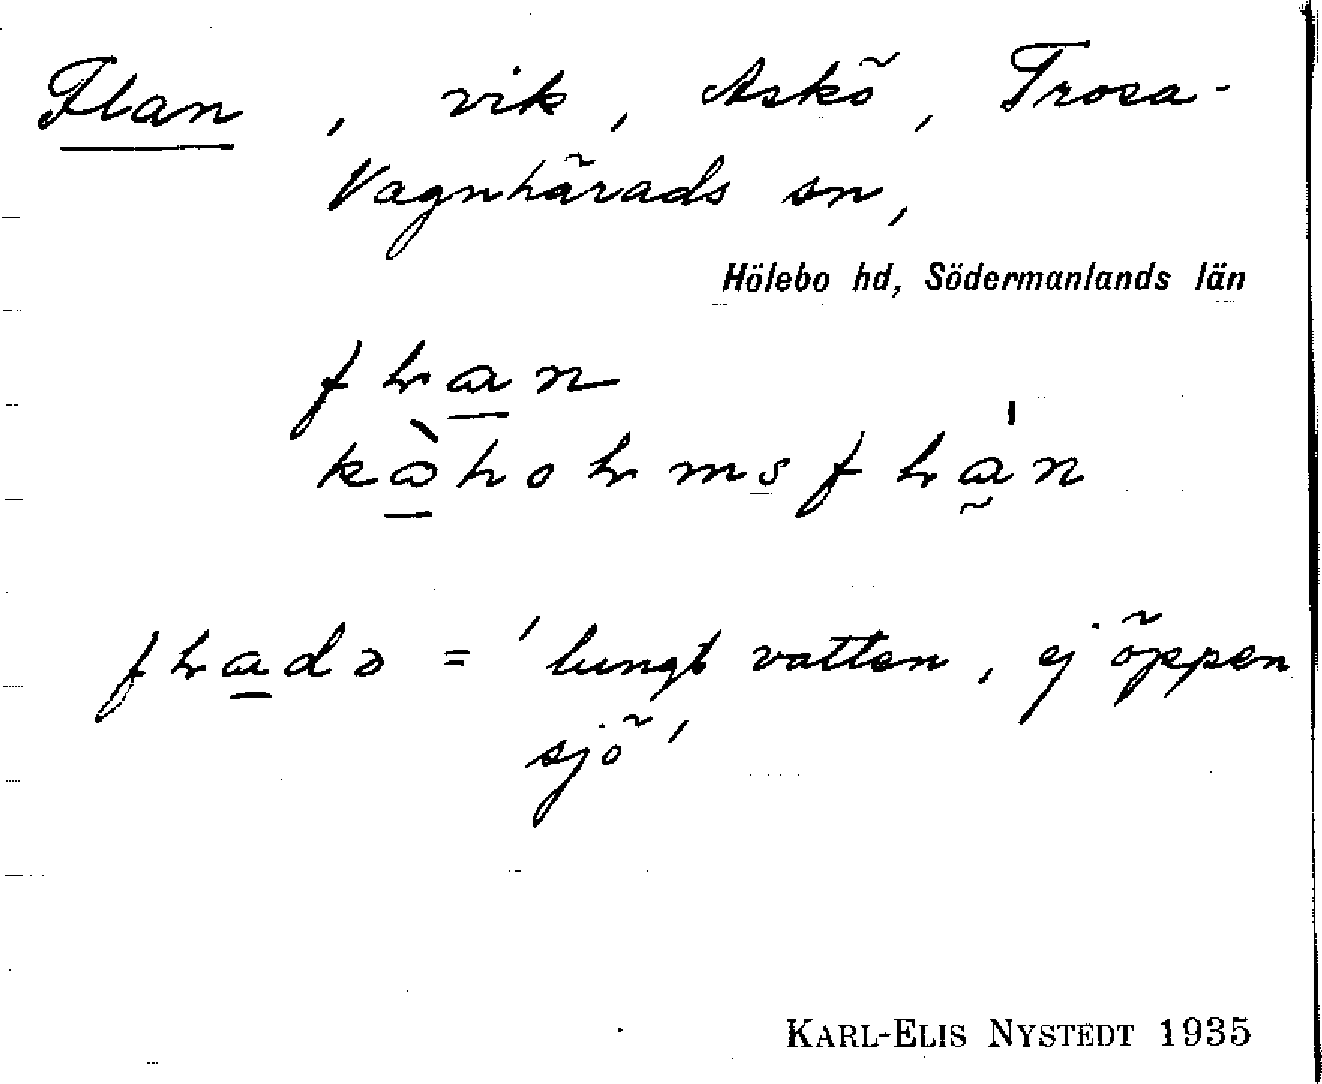 Flan, vik, Askö, Trosa-
Vagnhärads sn,
Hölebo hd, Södermanlands län
flan
kàholmsflán
fladə = 'lungt vatten, ej öppen
sjö'
KARL-ELIS NYSTEDT 1935